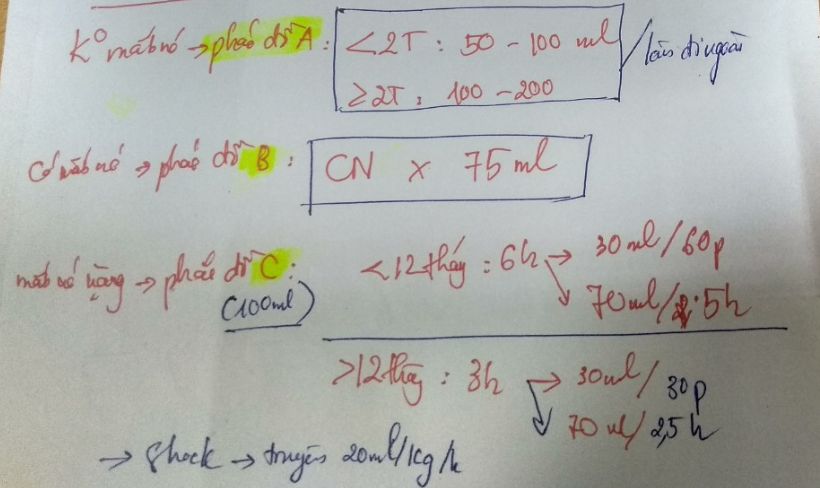 K° mất nó → phác đồ A : < 2T : 50 - 100 ml / lần đi ngoài
≥ 2T : 100 - 200
Có mất nó → phác đồ B : CN x 75 ml
mất nó nặng → phác đồ C : < 12 tháng : 6h → 30 ml / 60p
(100ml) 70 ml / 5h
> 12 tháng : 3h → 30 ml / 30p
70 ml / 2,5 h
→ Shock → truyền 20ml/kg/h